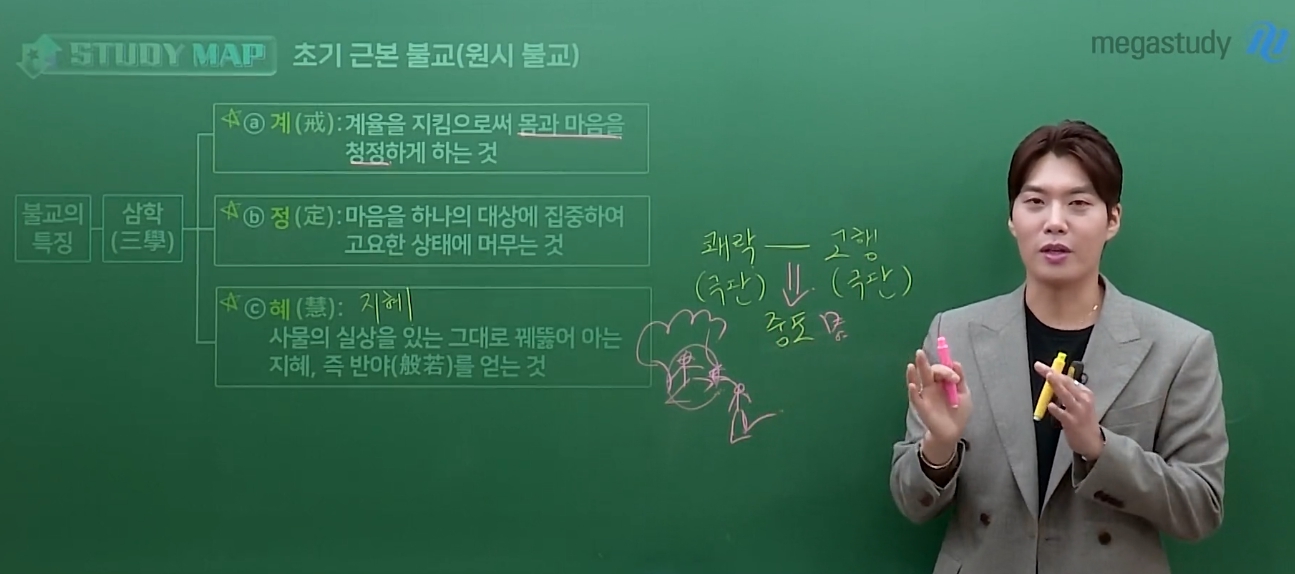 STUDY MAP 초기 근본 불교(원시 불교)
megastudy
불교의
특징
삼학
(三學)
ⓐ 계(戒): 계율을 지킴으로써 몸과 마음을
청정하게 하는 것
ⓑ 정(定): 마음을 하나의 대상에 집중하여
고요한 상태에 머무는 것
ⓒ 혜(慧): 지혜
사물의 실상을 있는 그대로 꿰뚫어 아는
지혜, 즉 반야(般若)를 얻는 것
쾌락 — 고행
(극단) (극단)
중도